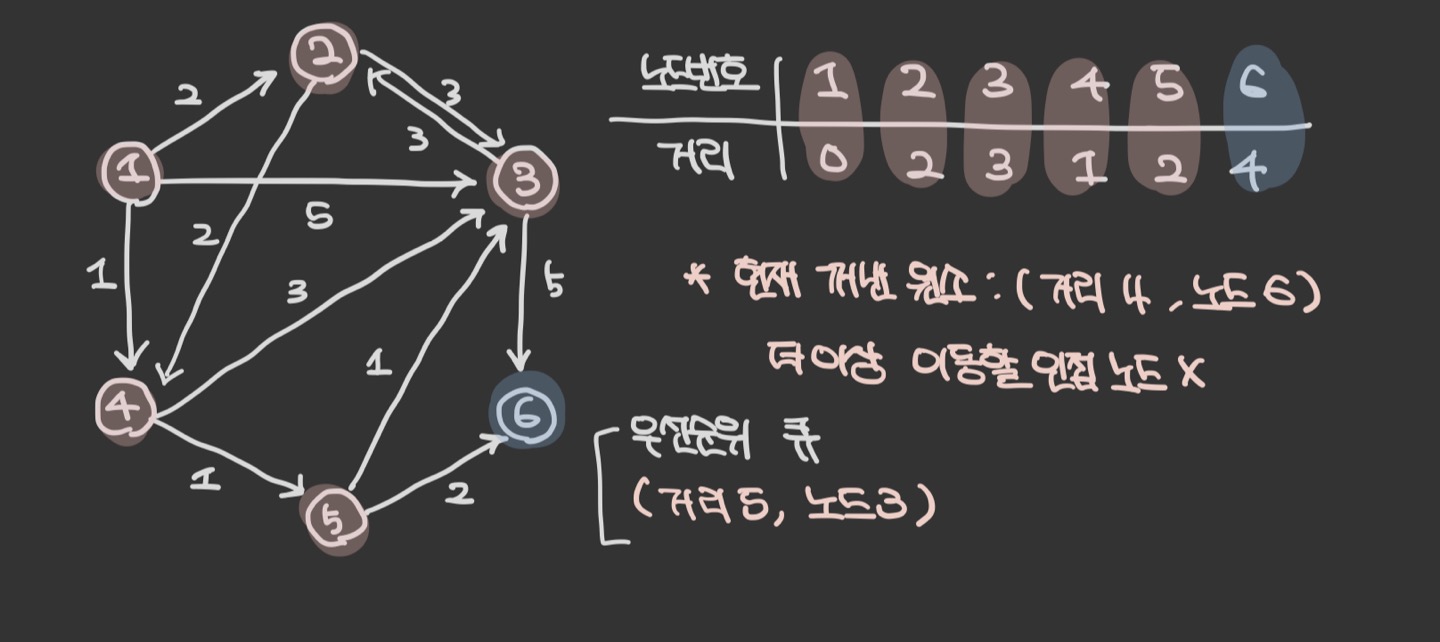 2
2
3
3
1
3
5
2
1
3
5
1
4
6
1
2
5
노드번호 1 2 3 4 5 6
거리 0 2 3 1 2 4
* 현재 꺼낸 원소 : (거리 4, 노드 6)
더 이상 이동할 인접 노드 X
우선순위 큐
(거리 5, 노드 3)